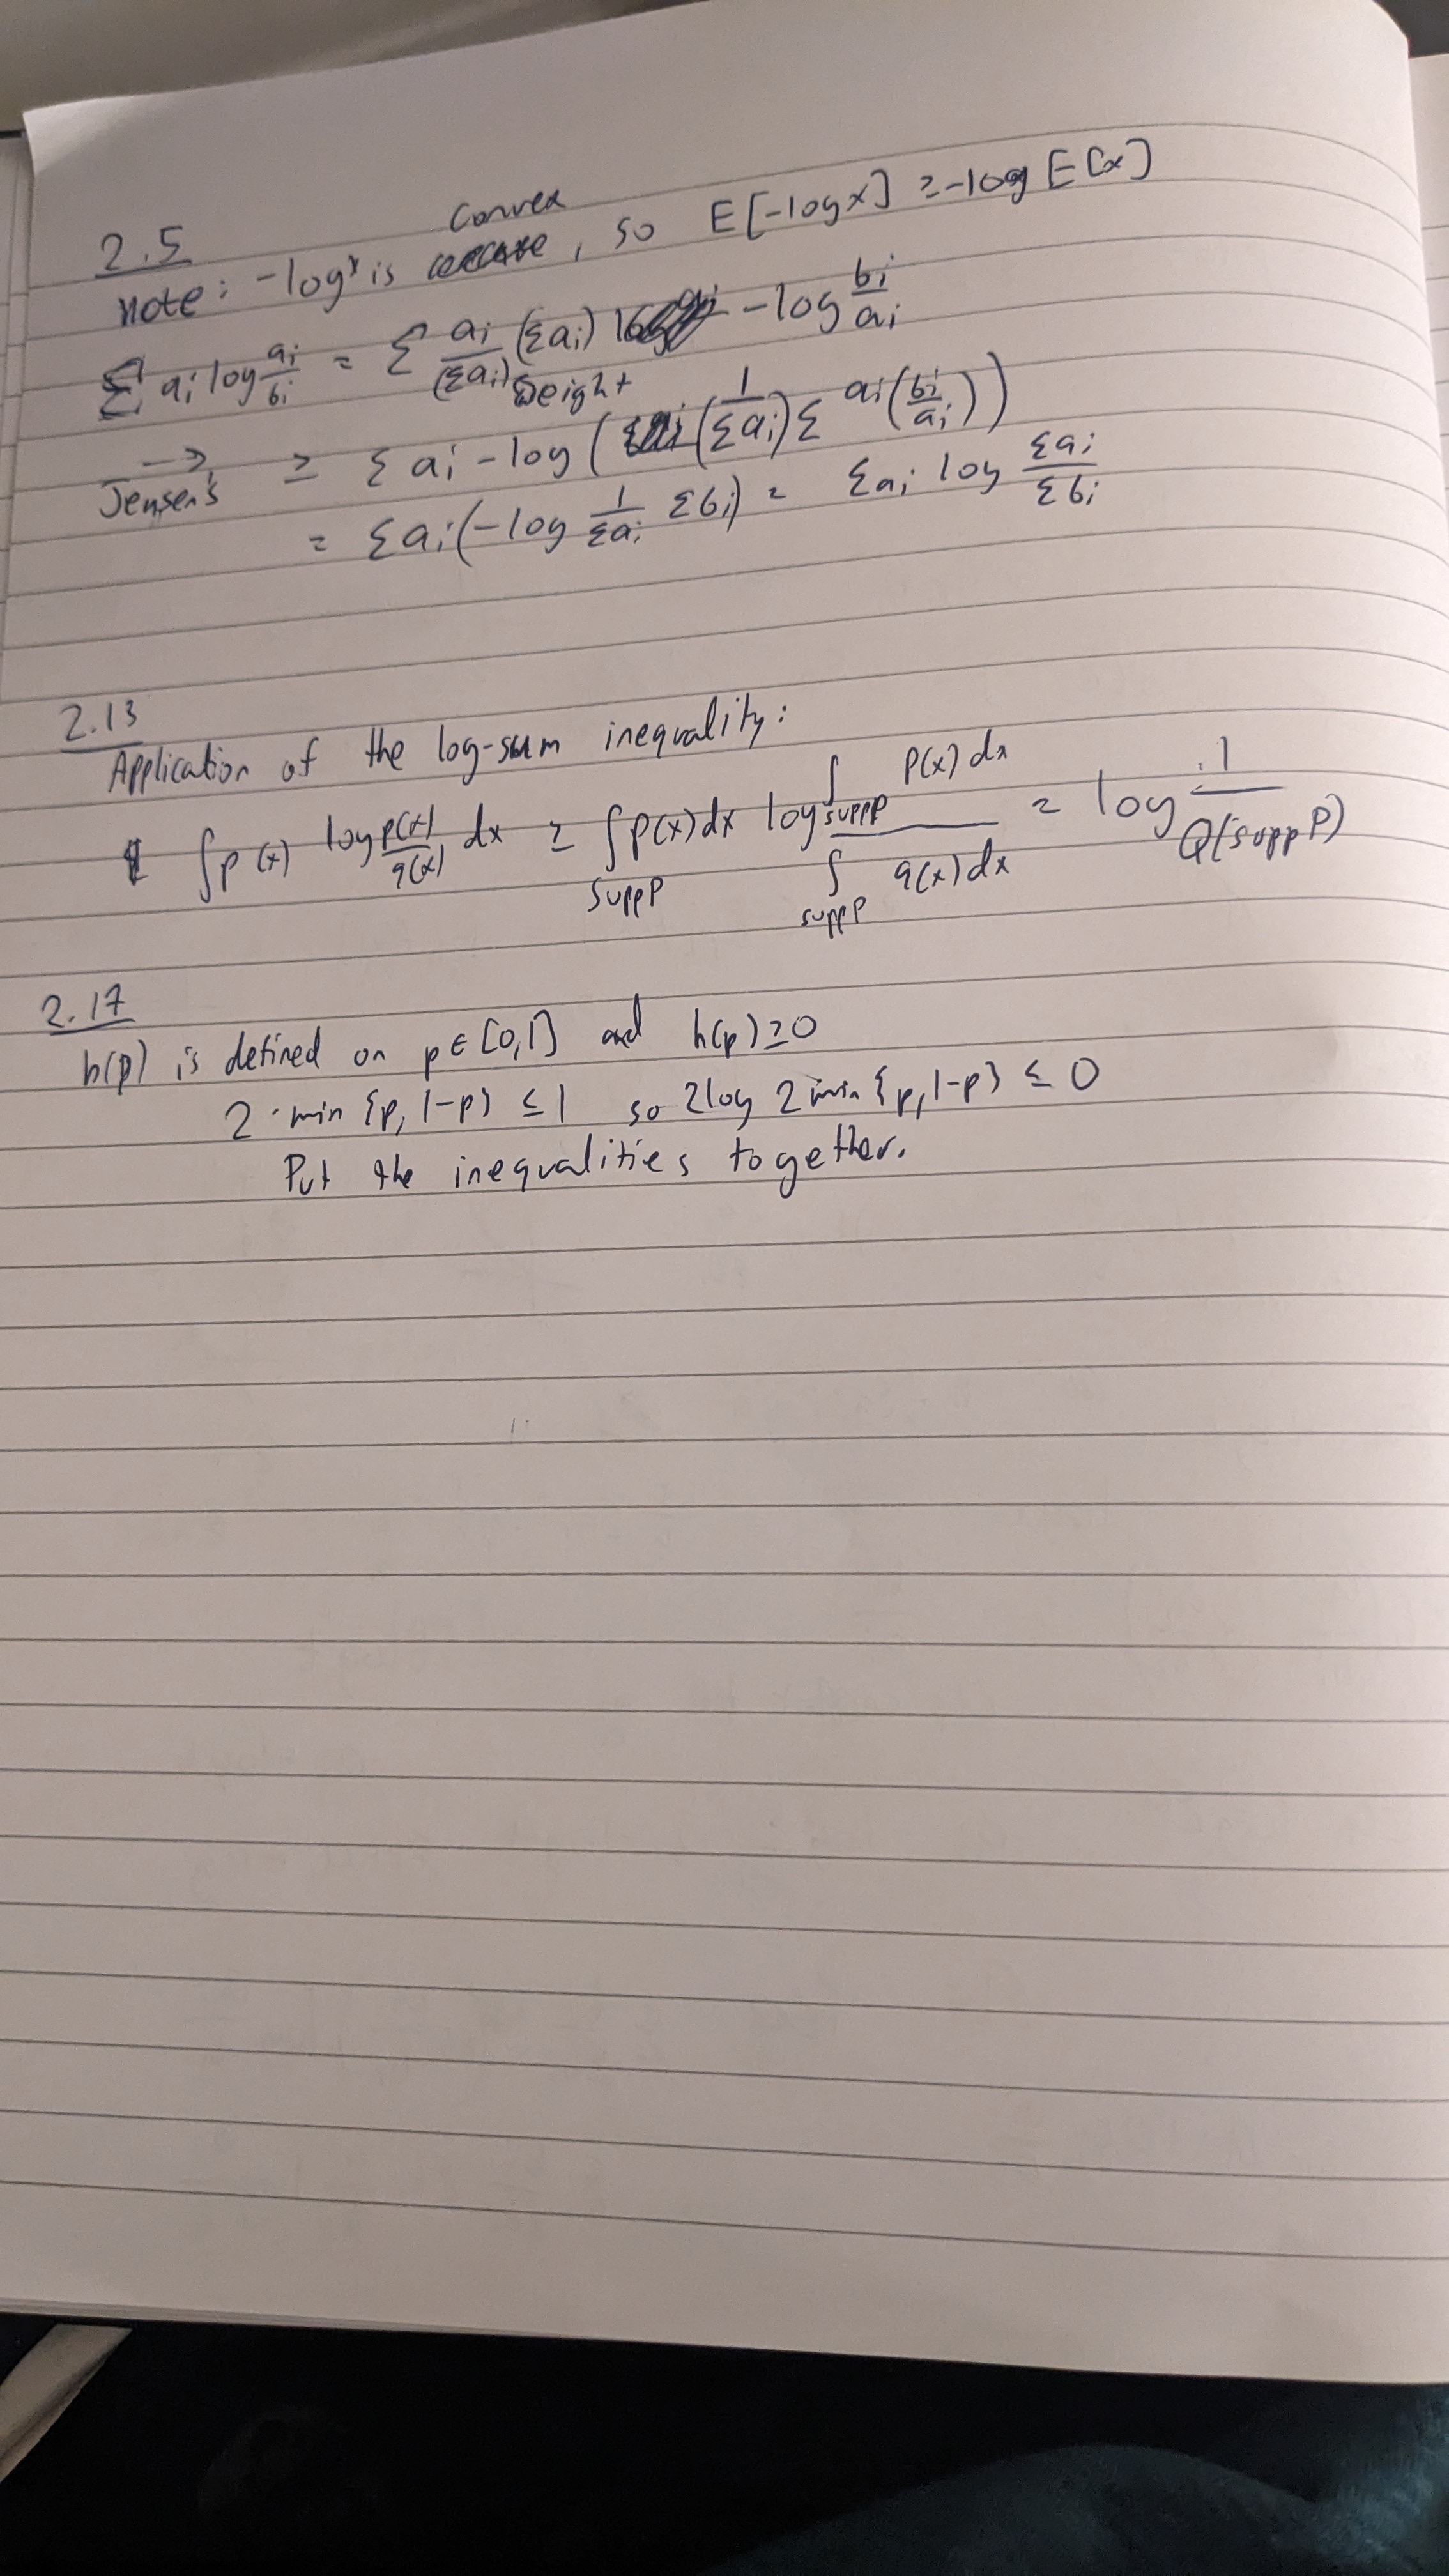 2.5
Note: -log x is convex, so E[-log x] ≥ -log E[x]
Σ a_i log a_i/b_i = Σ a_i/(Σa_i) (Σa_i) -log b_i/a_i
weight
→ Jensen's ≥ Σ a_i -log ( (1/Σa_i) Σ a_i (b_i/a_i) )
= Σ a_i (-log 1/Σa_i Σb_i) = Σ a_i log Σa_i/Σb_i
2.13
Application of the log-sum inequality:
∫ p(x) log p(x)/q(x) dx ≥ ∫_{supp P} p(x) dx log ∫_{supp P} p(x) dx / ∫_{supp P} q(x) dx = log 1/Q(supp P)
2.17
h(p) is defined on p ∈ [0,1] and h(p) ≥ 0
2 · min {p, 1-p} ≤ 1 so 2 log 2 min {p, 1-p} ≤ 0
Put the inequalities together.